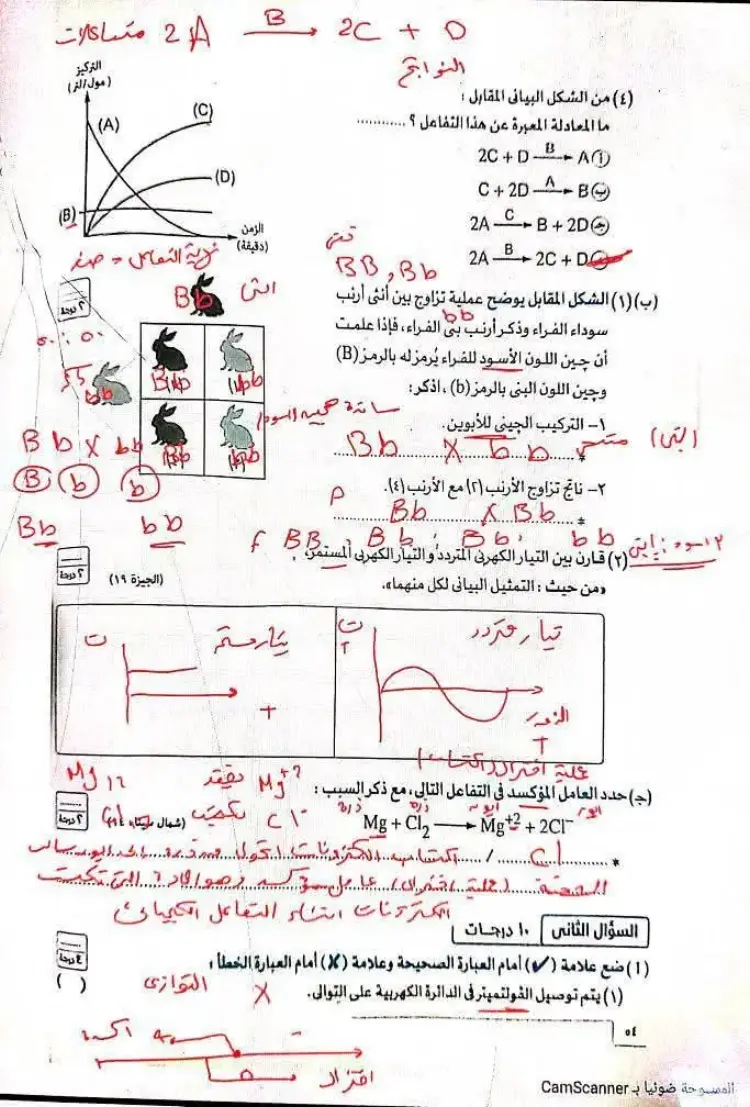 متفاعلات 2A B 2C + D
النواتج
التركيز
(مول/لتر)
(A)
(C)
(D)
(B)
الزمن
(دقيقة)
نهاية التفاعل = صفر
(٤) من الشكل البيانى المقابل :
ما المعادلة المعبرة عن هذا التفاعل ؟ ............
أ A ← B 2C + D
ب B ← A C + 2D
ج 2A C → B + 2D
د 2A B → 2C + D
نقى
BB , Bb
(ب) (١) الشكل المقابل يوضح عملية تزاوج بين أنثى أرنب
bb
سوداء الفراء وذكر أرنب بنى الفراء، فإذا علمت
أن چين اللون الأسود للفراء يُرمز له بالرمز (B)
وچين اللون البنى بالرمز (b) ، اذكر:
١- التركيب الچينى للأبوين.
Bb X bb
٢- ناتج تزاوج الأرنب (٢) مع الأرنب (٤).
P Bb X Bb
F BB , Bb , Bb , bb
٢ درجة
انثى
Bb
ذكر
bb
Bb
bb
Bb
bb
٥٠ : ٥٠
Bb X bb
B b b
Bb bb
سائدة
متنحى (بنى)
(٢) قارن بين التيار الكهربى المتردد والتيار الكهربى المستمر،
«من حيث : التمثيل البيانى لكل منهما».
(الجيزة ١٩)
٢ درجة
تيار متردد
ت
الزمن
تيار مستمر
ت
عملية اختزال (اكتساب)
(جـ) حدد العامل المؤكسد فى التفاعل التالى، مع ذكر السبب :
Mg 12 يفقد Mg+2
Cl يكتسب Cl-
ذرة ذرة ايون ايون
Mg + Cl2 → Mg+2 + 2Cl-
(شمال سيناء ١٤)
٢ درجة
* Cl / اكتساب الكترونات
(عملية اختزال) عامل مؤكسد وهو المادة التى تكتسب
الكترونات اثناء التفاعل الكيميائى
السؤال الثانى ١٠ درجات
٤ درجة
(١) ضع علامة (✓) أمام العبارة الصحيحة وعلامة (✗) أمام العبارة الخطأ :
(١) يتم توصيل الڤولتميتر فى الدائرة الكهربية على التوالى. ( )
X التوازى
اكسدة
اختزال
٥٤
الممسوحة ضوئيا بـ CamScanner